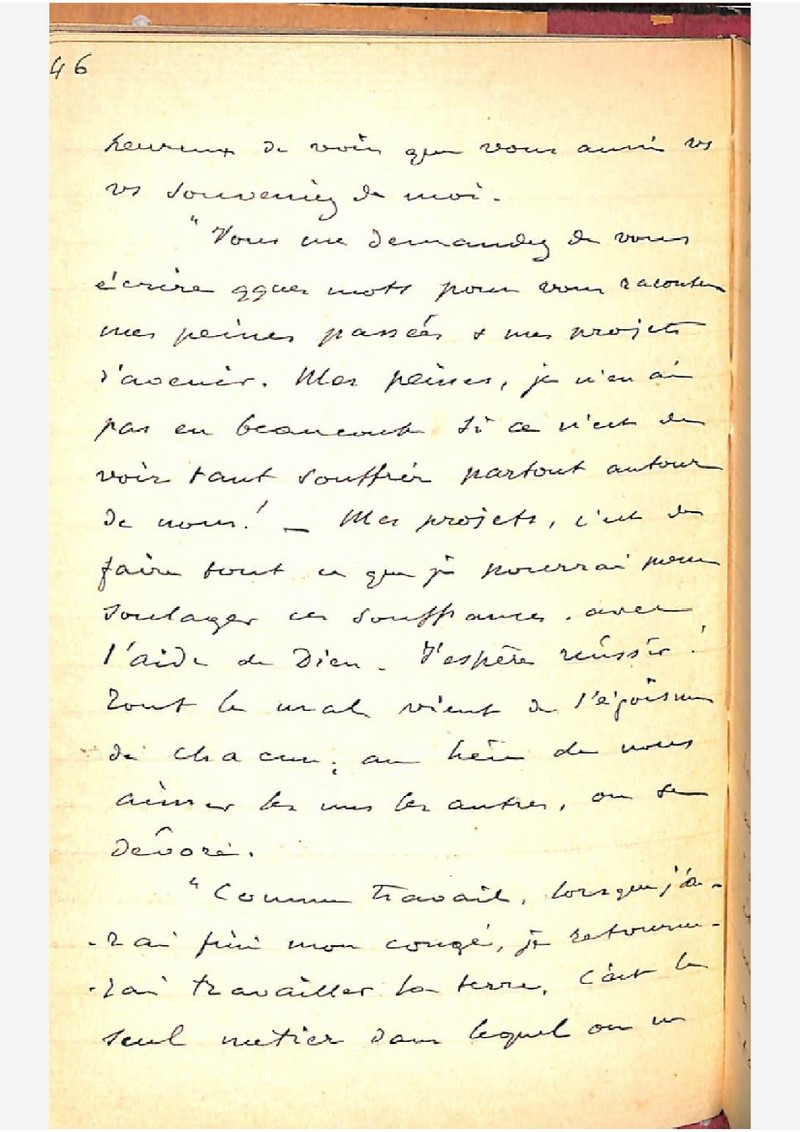 46
heureux de voir que vous aussi vs
vs souveniez de moi.
"Vous me demandez de vous
écrire qques mots pour vous raconter
mes peines passées & mes projets
d'avenir. Mes peines, je n'en ai
pas eu beaucoup si ce n'est de
voir tant souffrir partout autour
de nous! — Mes projets, c'est de
faire tout ce que je pourrai pour
soulager ces souffrances. avec
l'aide de Dieu. J'espère réussir!
Tout le mal vient de l'égoïsme
de chacun; au lieu de nous
aimer les uns les autres, on se
dévore.
"Comme travail, lorsque j'au-
-rai fini mon congé, je retourne-
-rai travailler la terre. C'est le
seul métier dans lequel on n